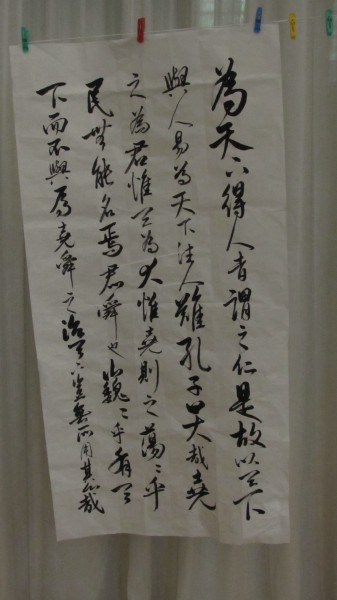 為天下得人者謂之仁是故以天下
與人易為天下得人難孔子曰大哉堯
之為君惟天為大惟堯則之蕩々乎
民無能名焉君舜也巍々乎有天
下而不與焉堯舜之治天下豈無所用其心哉